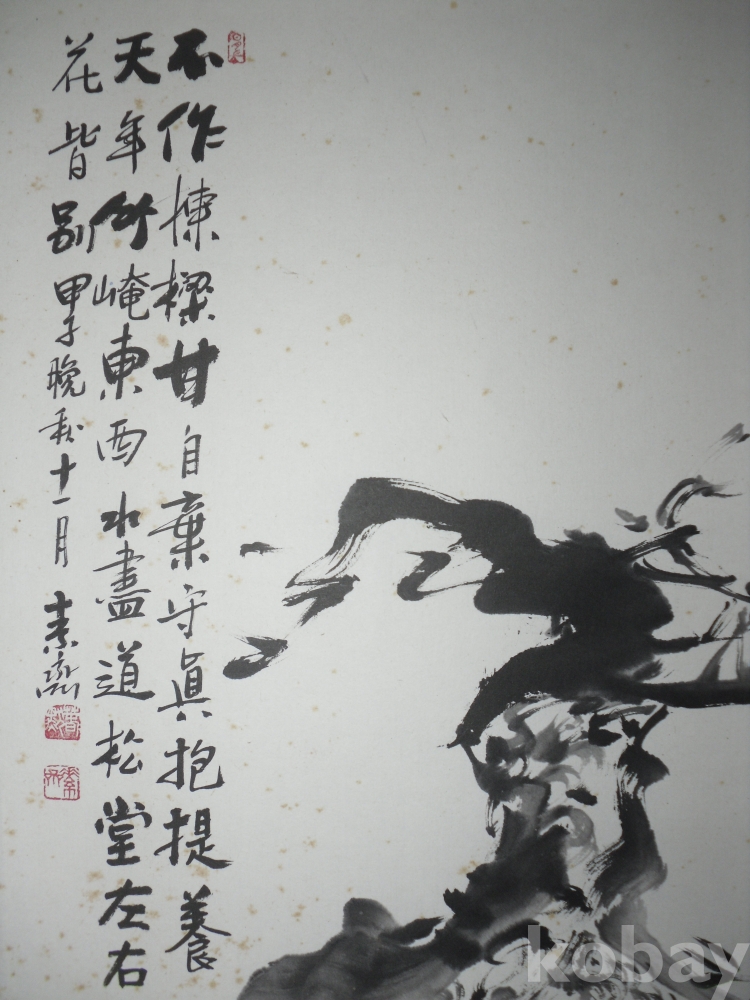 不作揀樑甘自棄守眞抱提養
天年竹崦東西水盡道松堂左右
花皆別
甲子晚秋十一月 素齋
kobay